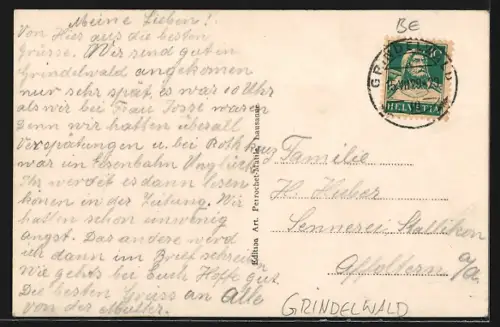 Meine Lieben!
Von Hier aus die besten
Grüsse. Wir send gut in
Grindelwald angekomen
nur sehr spät, es war 10 Uhr
als wir bei Frau Josse waren
Denn wir hatten überall
Verspatungen u. bei Rothkreuz
war ein Eisenbahn Unglück
Ihr werdet es dann lesen
könen in der Zeitung. Wir
hatten schon ein wenig
angst. Das andere werd
ich dann im Brief schreiben
Wie gehts bei Euch Hoffe gut.
Die besten Gruss an Alle
von der Mutter.
Edition Art. Perrochet-Matile, Lausanne
BE
GRINDELWALD
HELVETIA
Familie
H. Huber
Sennerei Stallikon
Affoltern a/A.
GRINDELWALD